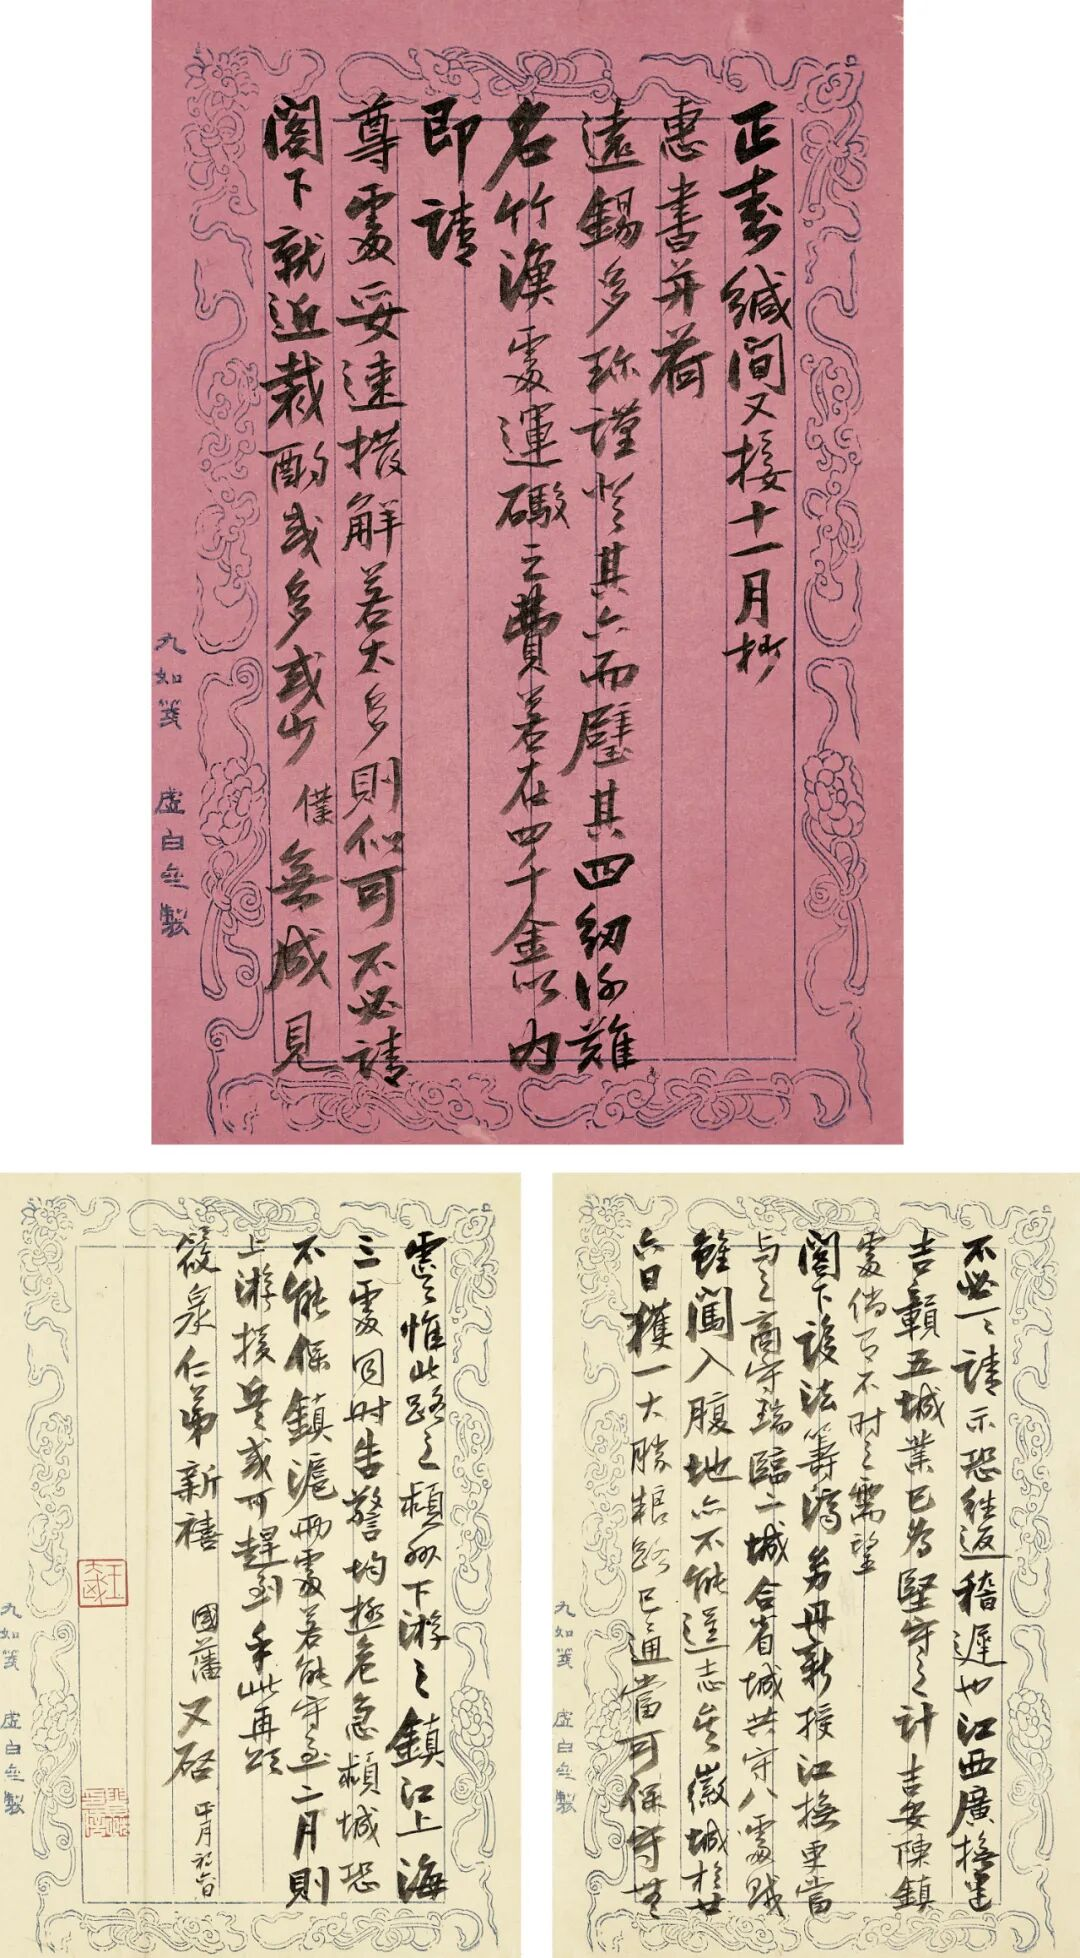 正緘間又接十一月杪
惠書并荷
遠錫多珍謹登其六而璧其四紉謝難
名竹漁處運礮之費若在四千金以內
即請
尊處妥速撥解若太多則似可不必請
閣下就近裁酌或多或少僕無成見
九如箋 虛白齋製
不必一一請示恐往返稽遲也江西廣撫建
吉贛五城業已為堅守之計吉安陳鎮
處倘有不時之需望
閣下設法籌濟幼丹新授江撫更當
與之商守瑞臨二城合省城共守八處賊
雖闖入腹地亦不能逞志矣徽城於廿
六日獲一大勝糧路已通當可保守無
九如箋 虛白齋製
虞惟北路之潁州下游之鎮江上海
三處同時告警均極危急潁城恐
不能保鎮滬兩處若能守至二月則
上游援兵或可趕到手此再頌
筱泉仁弟新禧 國藩又啓 正月初六日
九如箋 虛白齋製